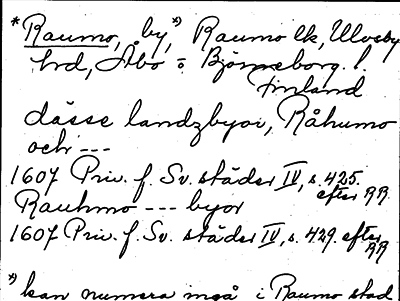 *Raumo, by,*) Raumo lk, Ulvsby
hrd, Åbo o Björneborg. l.
Finland
dässe landzbyor, Råhumo
och ---
1607 Priv. f. Sv. städer IV, s. 425.
efter RR.
Rauhmo --- byor
1607 Priv. f. Sv. städer IV, s. 429. efter
RR
*) kan numera ingå i Raumo stad